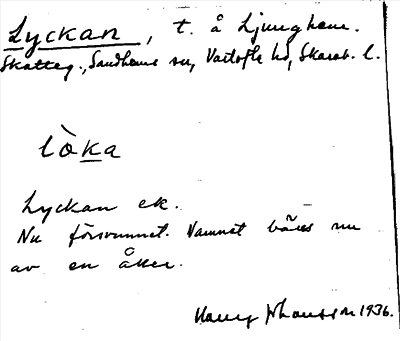 Lyckan, t. å Ljunghem.
Skatteg., Sandhems sn, Vartofta hd, Skarab. l.
lòka
Lyckan ek.
Nu försvunnet. Namnet bäres nu
av en åker.
Harry Johansson 1936.